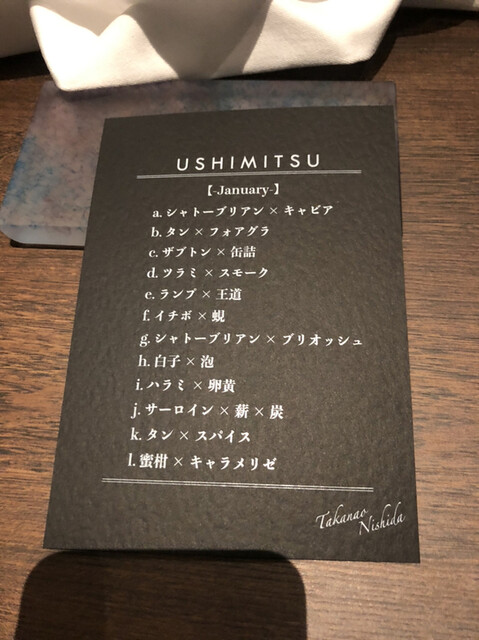 USHIMITSU
【-January-】
a. シャトーブリアン × キャビア
b. タン × フォアグラ
c. ザブトン × 缶詰
d. ツラミ × スモーク
e. ランプ × 王道
f. イチボ × 蜆
g. シャトーブリアン × ブリオッシュ
h. 白子 × 泡
i. ハラミ × 卵黄
j. サーロイン × 薪 × 炭
k. タン × スパイス
l. 蜜柑 × キャラメリゼ
Takanao
Nishida